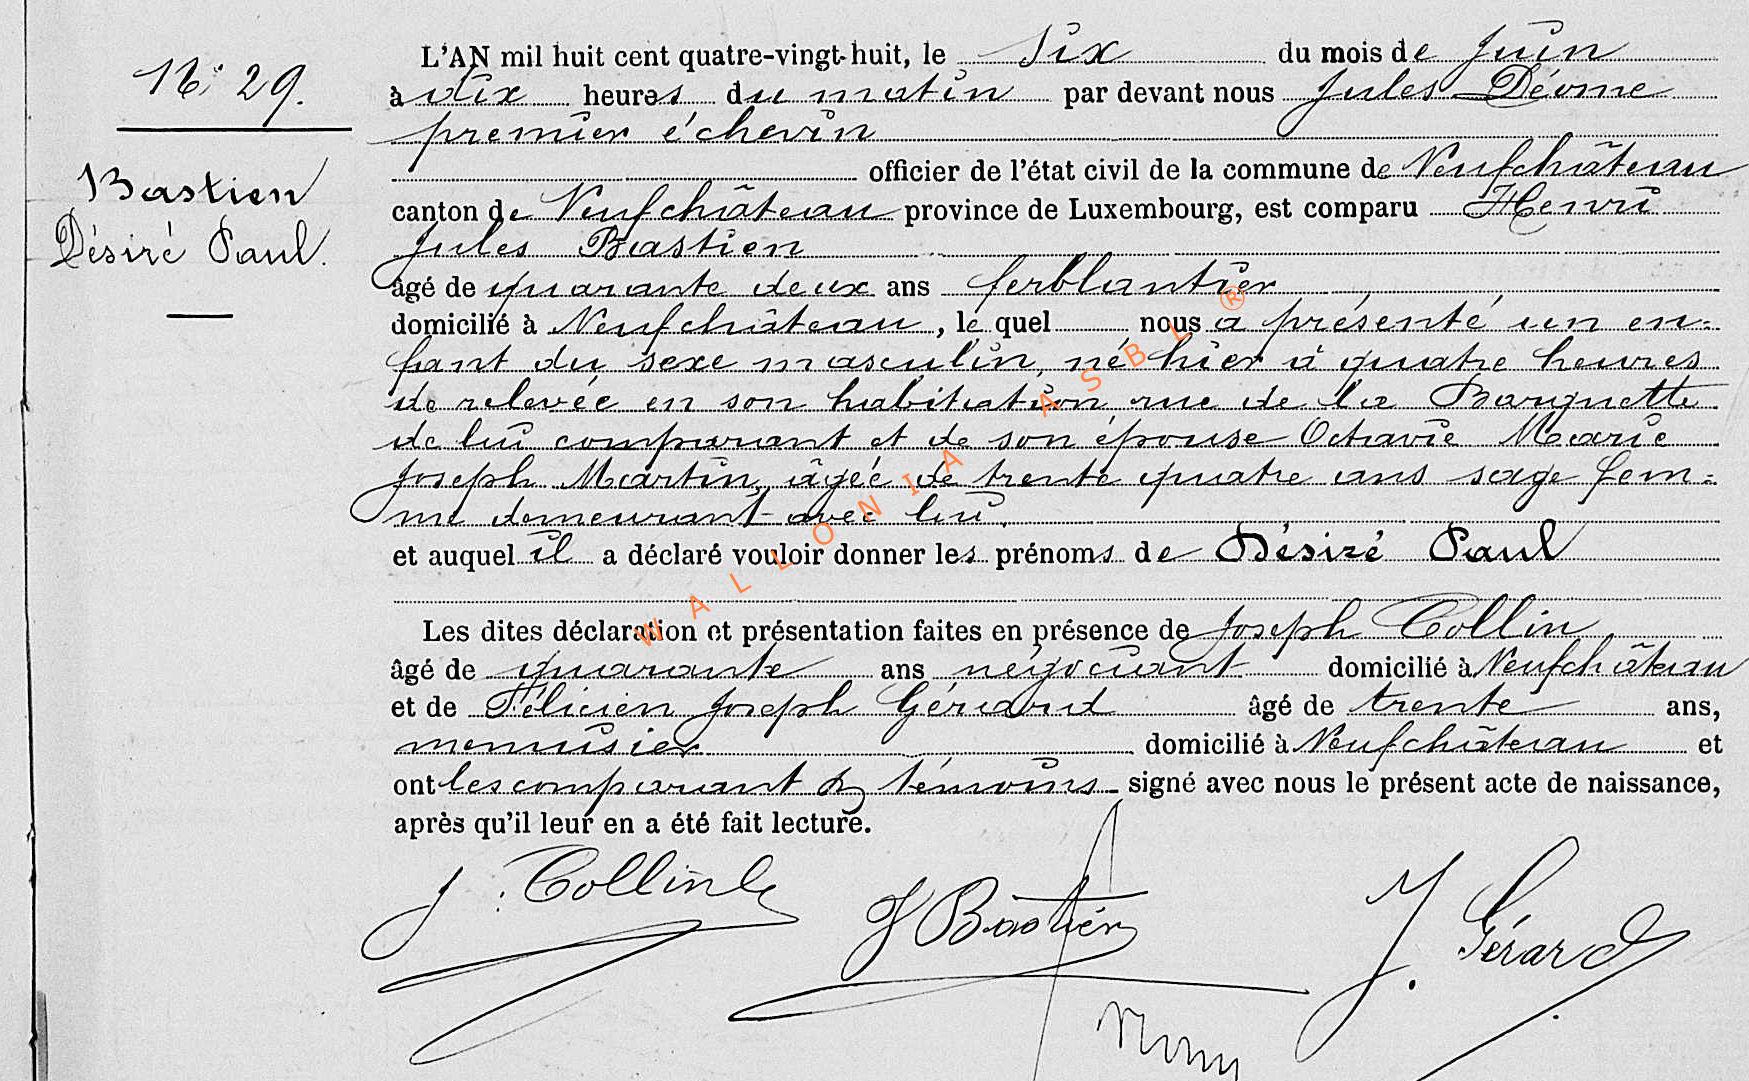 N° 29.
Bastien
Désiré Paul.
L'AN mil huit cent quatre-vingt-huit, le six du mois de juin
à dix heures du matin par devant nous Jules
premier échevin
officier de l'état civil de la commune de Neufchâteau
canton de Neufchâteau province de Luxembourg, est comparu Henri
Jules Bastien
âgé de quarante deux ans ferblantier
domicilié à Neufchâteau, le quel nous a présenté un en=
fant du sexe masculin, né hier à quatre heures
de relevée en son habitation rue de la
de lui comparant et de son épouse Octavie Marie
Joseph Martin, âgée de trente quatre ans sage fem=
me demeurant avec lui,
et auquel il a déclaré vouloir donner les prénoms de Désiré Paul
Les dites déclaration et présentation faites en présence de Joseph Collin
âgé de quarante ans négociant domicilié à Neufchâteau
et de Félicien Joseph Gérard âgé de trente ans,
menuisier domicilié à Neufchâteau et
ont les comparant & témoins signé avec nous le présent acte de naissance,
après qu'il leur en a été fait lecture.
J. Collin
J Bastien
J. Gérard
WALLONIA ASBL ®